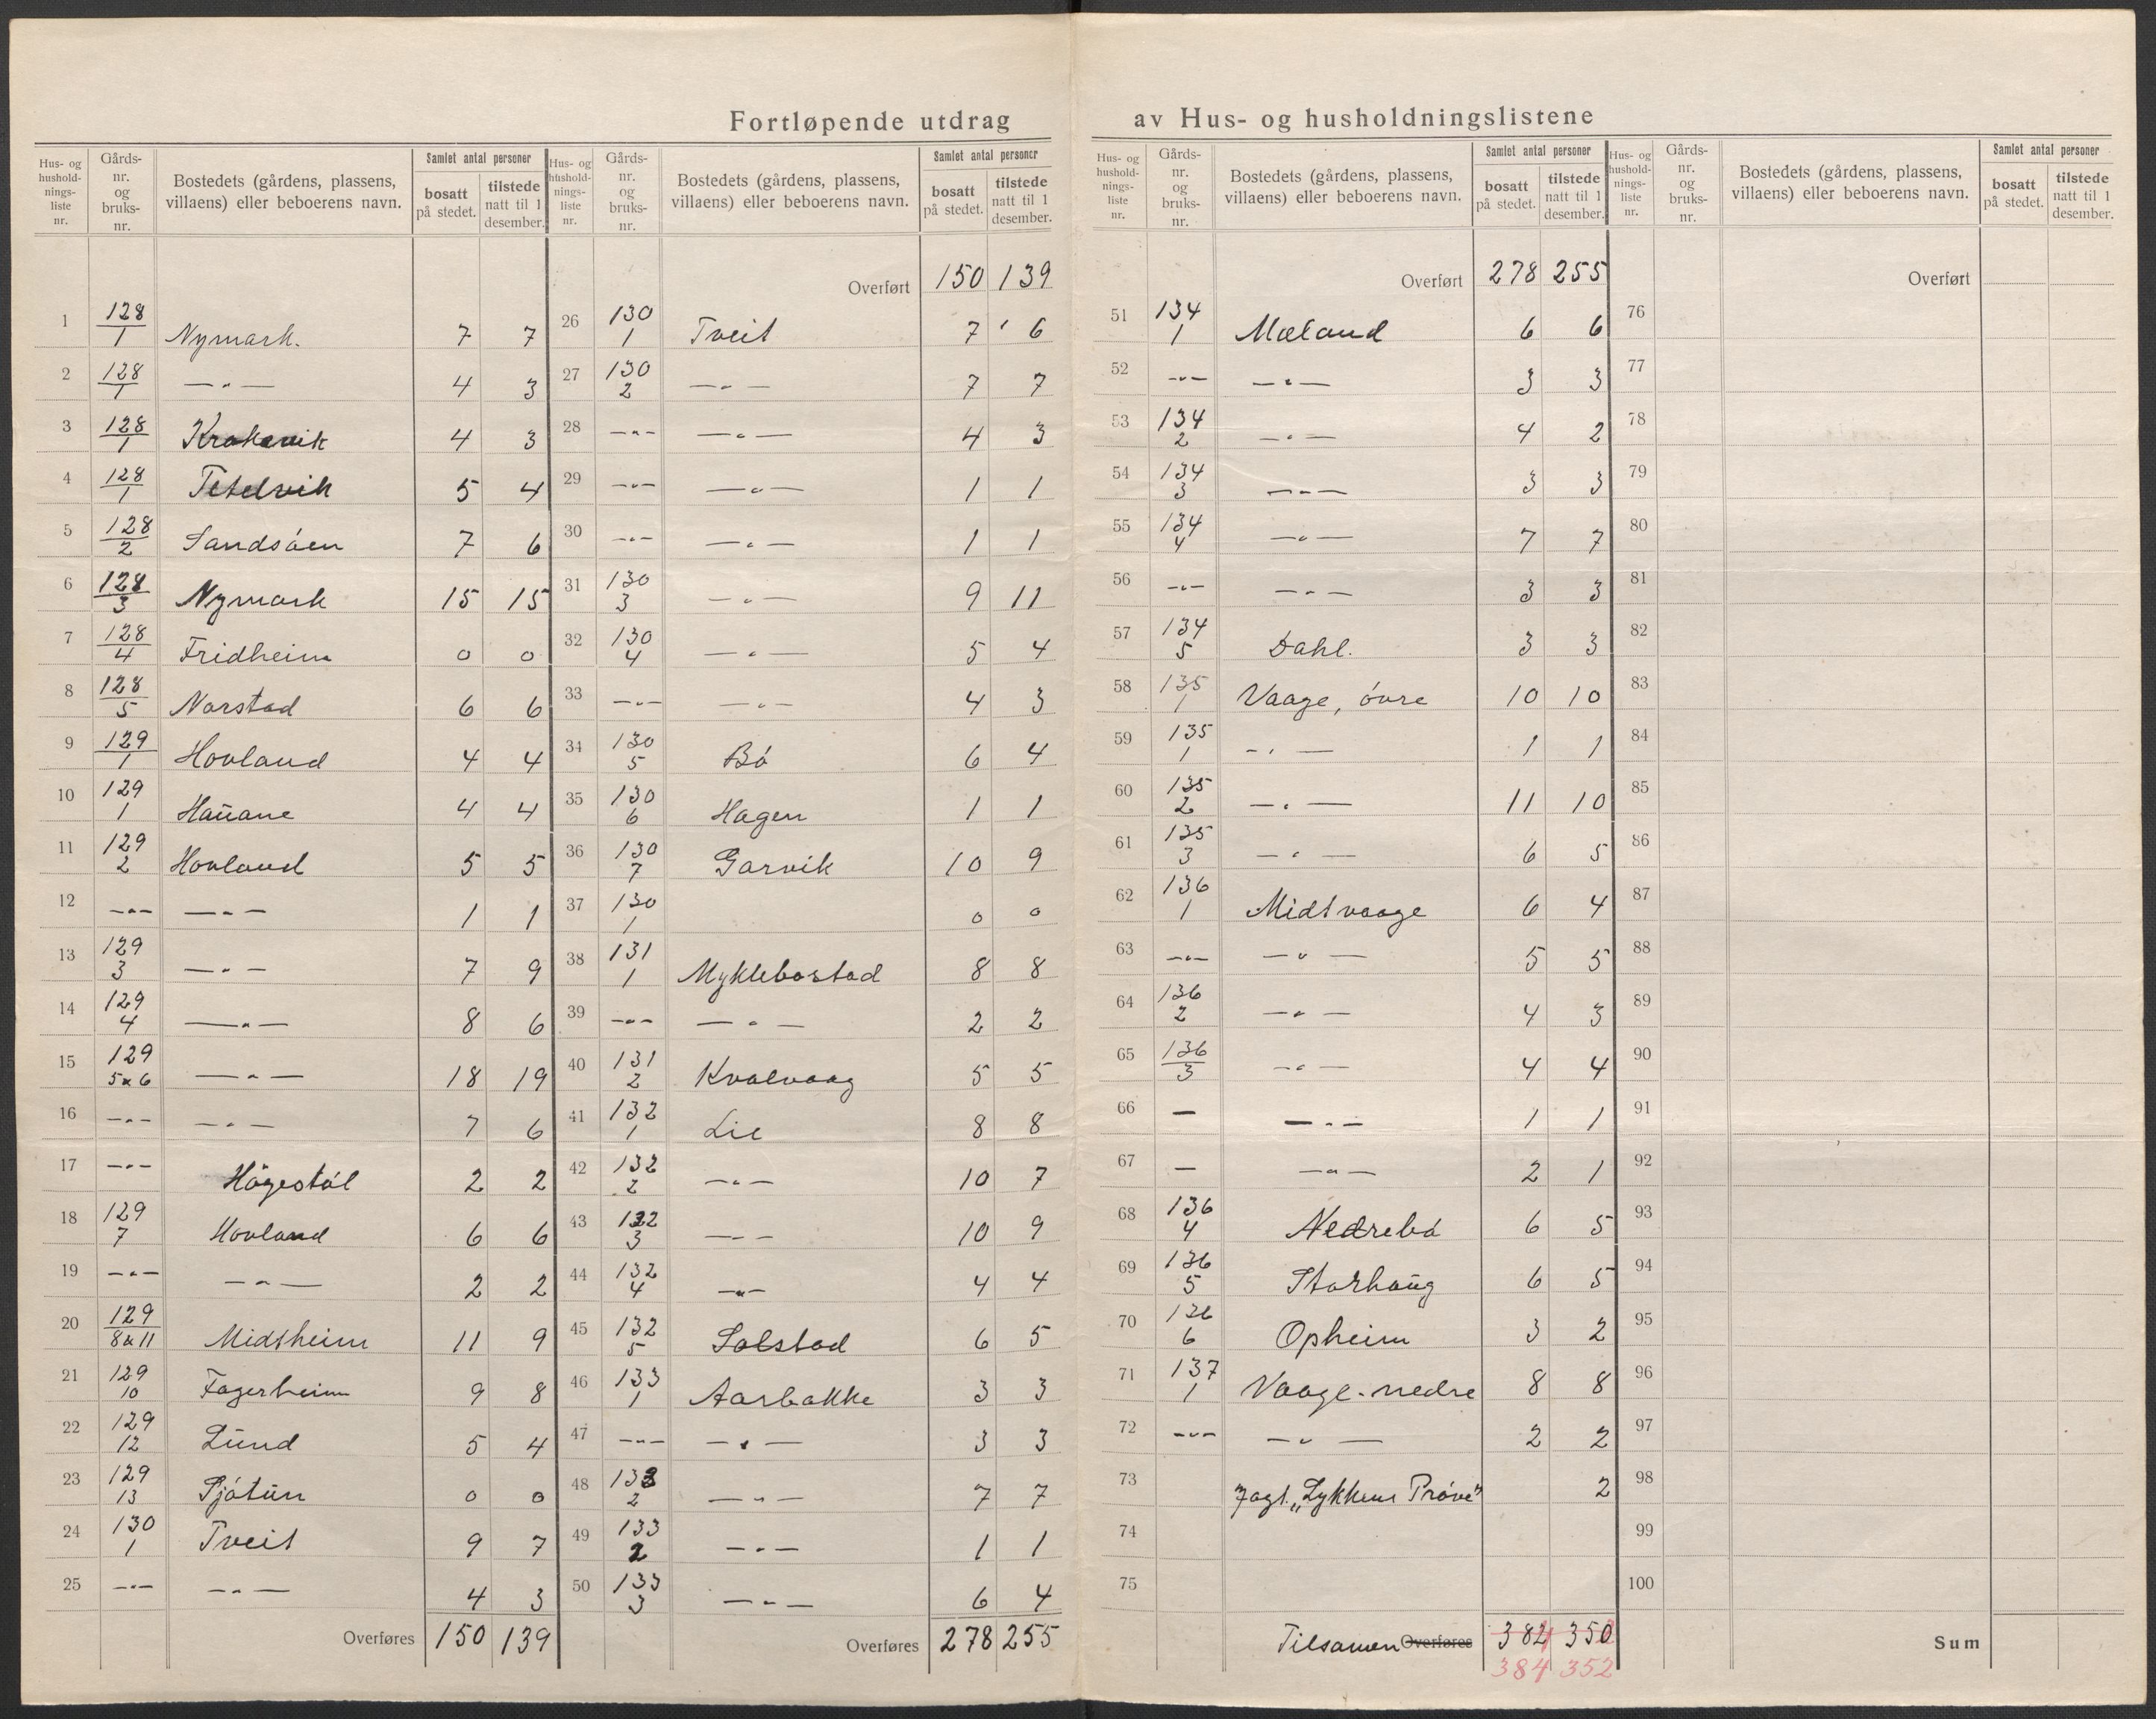 Fortløpende utdrag av Hus- og husholdningslistene
Hus- og hushold-nings-liste nr. | Gårds-nr. og bruks-nr. | Bostedets (gårdens, plassens, villaens) eller beboerens navn. | Samlet antal personer | bosatt på stedet. | tilstede natt til 1 desember.
1 128/1 Nymark. 7 7
2 128/1 —„— 4 3
3 128/1 Krakavik 4 3
4 128/1 Tetelvik 5 4
5 128/2 Sandsóen 7 6
6 128/3 Nymark 15 15
7 128/4 Fridheim 0 0
8 128/5 Norstad 6 6
9 129/1 Hovland 4 4
10 129/1 Haŭane 4 4
11 129/2 Hovland 5 5
12 —„— —„— 1 1
13 129/3 —„— 7 9
14 129/4 —„— 8 6
15 129/5 & 6 —„— 18 19
16 —„— —„— 7 6
17 —„— Högestöl 2 2
18 129/7 Hovland 6 6
19 —„— —„— 2 2
20 129/8 & 11 Midtheim 11 9
21 129/10 Fagerheim 9 8
22 129/12 Lŭnd 5 4
23 129/13 Sjótŭn 0 0
24 130/1 Tveit 9 7
25 —„— —„— 4 3
Overføres 150 139
Hus- og hushold-nings-liste nr. | Gårds-nr. og bruks-nr. | Bostedets (gårdens, plassens, villaens) eller beboerens navn. | Samlet antal personer | bosatt på stedet. | tilstede natt til 1 desember.
Overført 150 139
26 130/1 Tveit 7 6
27 130/2 —„— 7 7
28 —„— —„— 4 3
29 —„— —„— 1 1
30 —„— —„— 1 1
31 130/3 —„— 9 11
32 130/4 —„— 5 4
33 —„— —„— 4 3
34 130/5 Bó 6 4
35 130/6 Hagen 1 1
36 130/7 Garvik 10 9
37 130/1 0 0
38 131/1 Myklebostad 8 8
39 —„— —„— 2 2
40 131/2 Kvalvaag 5 5
41 132/1 Lie 8 8
42 132/2 —„— 10 7
43 132/3 —„— 10 9
44 132/4 —„— 4 4
45 132/5 Solstad 6 5
46 133/1 Aarbakke 3 3
47 —„— —„— 3 3
48 133/2 —„— 7 7
49 133/2 —„— 1 1
50 133/3 —„— 6 4
Overføres 278 255
Hus- og hushold-nings-liste nr. | Gårds-nr. og bruks-nr. | Bostedets (gårdens, plassens, villaens) eller beboerens navn. | Samlet antal personer | bosatt på stedet. | tilstede natt til 1 desember.
Overført 278 255
51 134/1 Mæland 6 6
52 —„— —„— 3 3
53 134/2 —„— 4 2
54 134/3 —„— 3 3
55 134/4 —„— 7 7
56 —„— —„— 3 3
57 134/5 Dahl. 3 3
58 135/1 Vaage, óvre 10 10
59 135/1 —„— 1 1
60 135/2 —„— 11 10
61 135/3 —„— 6 5
62 136/1 Midtvaage 6 4
63 —„— —„— 5 5
64 136/2 —„— 4 3
65 136/3 —„— 4 4
66 — —„— 1 1
67 — —„— 2 1
68 136/4 Nedrebó 6 5
69 136/5 Storhaŭg 6 5
70 136/6 Opheim 3 2
71 137/1 Vaage-nedre 8 8
72 —„— —„— 2 2
73 Jagt. „Lykkens Próve" 2
74
75
Tilsamen Overføres 382 350
384 352
Hus- og hushold-nings-liste nr. | Gårds-nr. og bruks-nr. | Bostedets (gårdens, plassens, villaens) eller beboerens navn. | Samlet antal personer | bosatt på stedet. | tilstede natt til 1 desember.
Overført
76
77
78
79
80
81
82
83
84
85
86
87
88
89
90
91
92
93
94
95
96
97
98
99
100
Sum